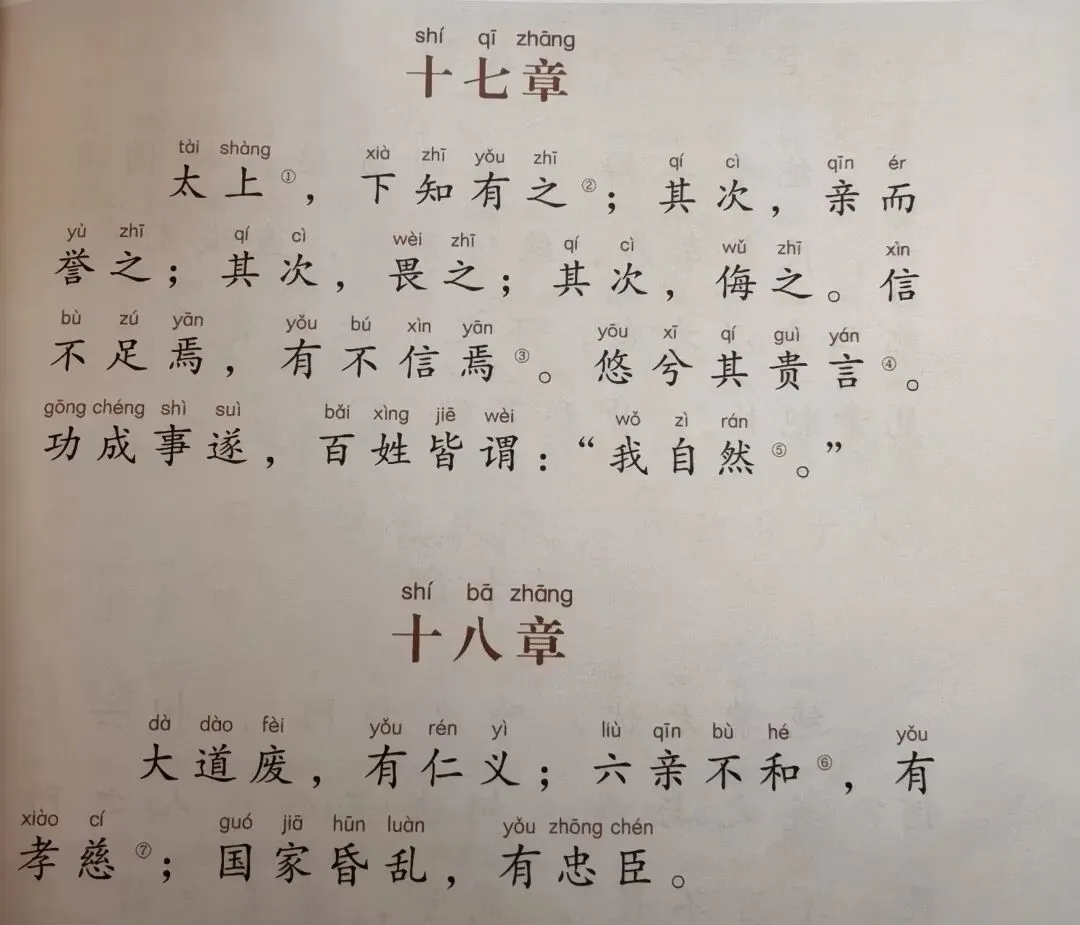 shí qī zhāng
十七章
tài shàng xià zhī yǒu zhī qí cì qīn ér
太上①，下知有之②；其次，亲而
yù zhī qí cì wèi zhī qí cì wǔ zhī xìn
誉之；其次，畏之；其次，侮之。信
bù zú yān yǒu bú xìn yān yōu xī qí guì yán
不足焉，有不信焉③。悠兮其贵言④。
gōng chéng shì suì bǎi xìng jiē wèi wǒ zì rán
功成事遂，百姓皆谓：“我自然⑤。”
shí bā zhāng
十八章
dà dào fèi yǒu rén yì liù qīn bù hé yǒu
大道废，有仁义；六亲不和⑥，有
xiào cí guó jiā hūn luàn yǒu zhōng chén
孝慈⑦；国家昏乱，有忠臣。